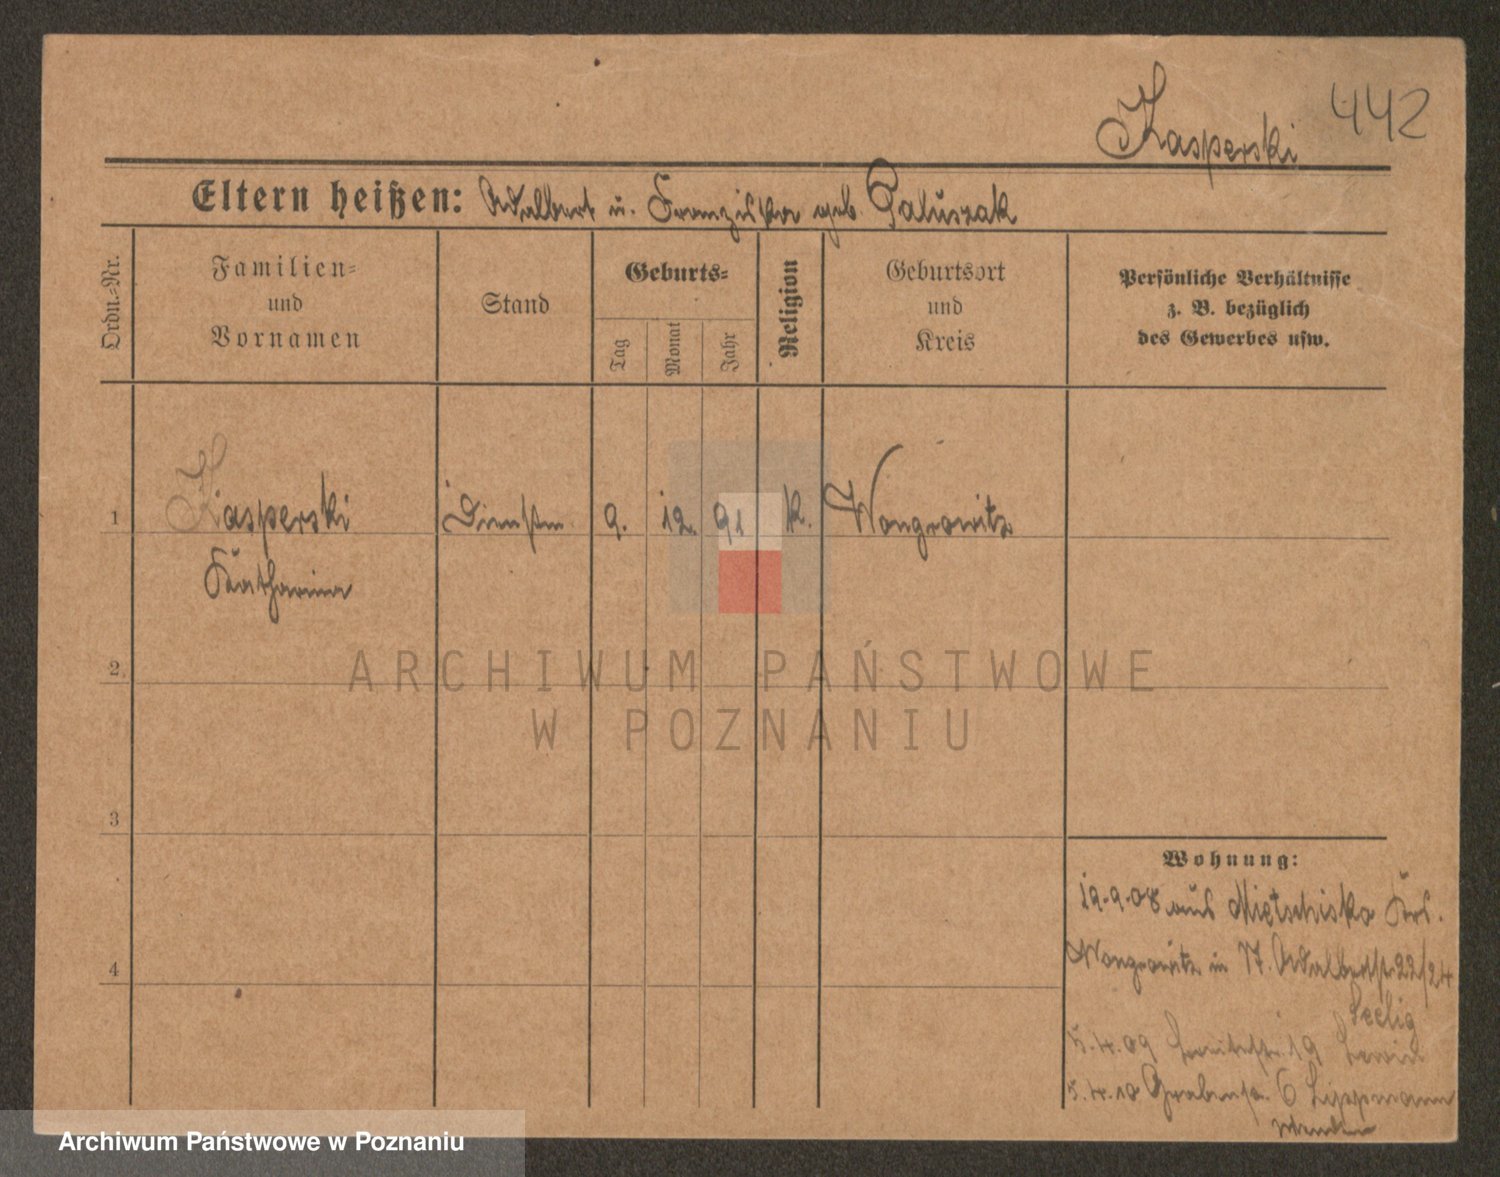 442
Kasperski
Eltern heißen: Adalbert u. Franziska geb. Paluszak
Ordn.-Nr.
Familien-
und
Vornamen
Stand
Geburts-
Tag
Monat
Jahr
Religion
Geburtsort
und
Kreis
Persönliche Verhältnisse
z. B. bezüglich
des Gewerbes usw.
1 Kasperski Dienstm. 9. 12. 91 k. Wongrowitz
Katharina
2
3
4
Wohnung:
19.9.08 aus Mietschisko Krs.
Wongrowitz in 17. Adalbertstr. 22/24
Seelig
5.4.09 19 Lewin
5.4.10 Grabenstr. 6 Lippmann
ARCHIWUM PAŃSTWOWE
W POZNANIU
Archiwum Państwowe w Poznaniu